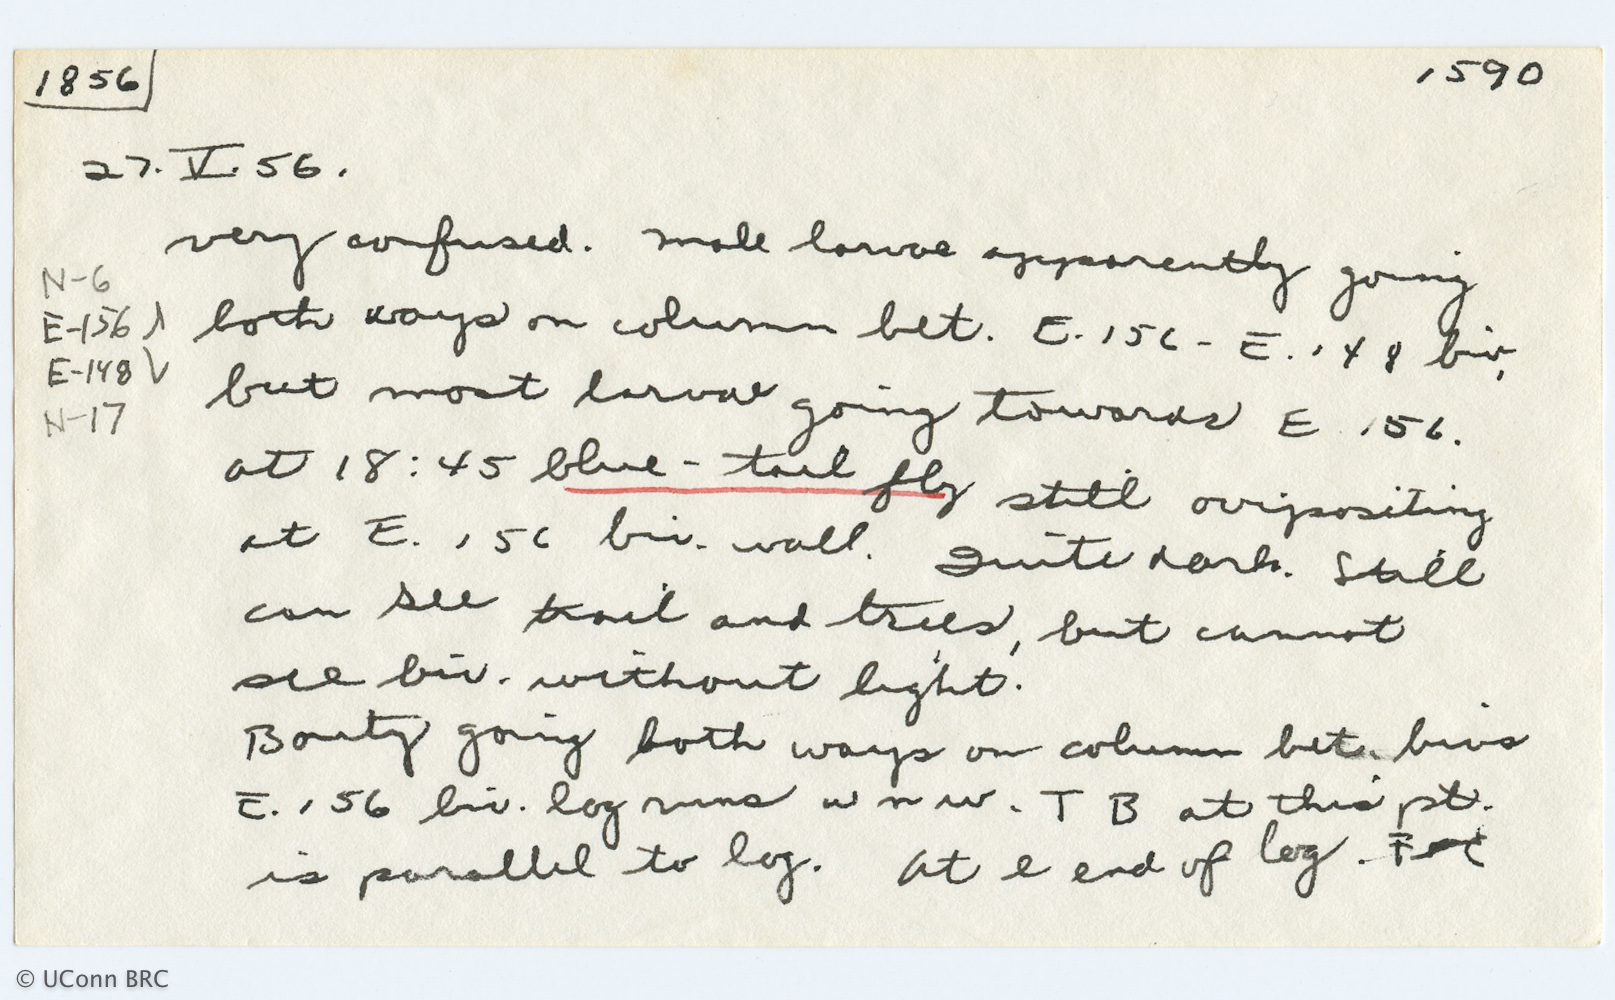 1856
1590
27.V.56.
very confused. male larvae apparently going
N-6
E-156
both ways on column bet. E.156 - E.148 biv,
E-148
but most larvae going towards E 156.
N-17
at 18:45 blue-tail fly still ovipositing
at E. 156 biv. wall. Quite dark. Still
can see trail and trees, but cannot
see biv. without light.
Booty going both ways on column bet. bivs
E. 156 biv. log runs w n w. T B at this pt.
is parallel to log. At e end of log.
© UConn BRC